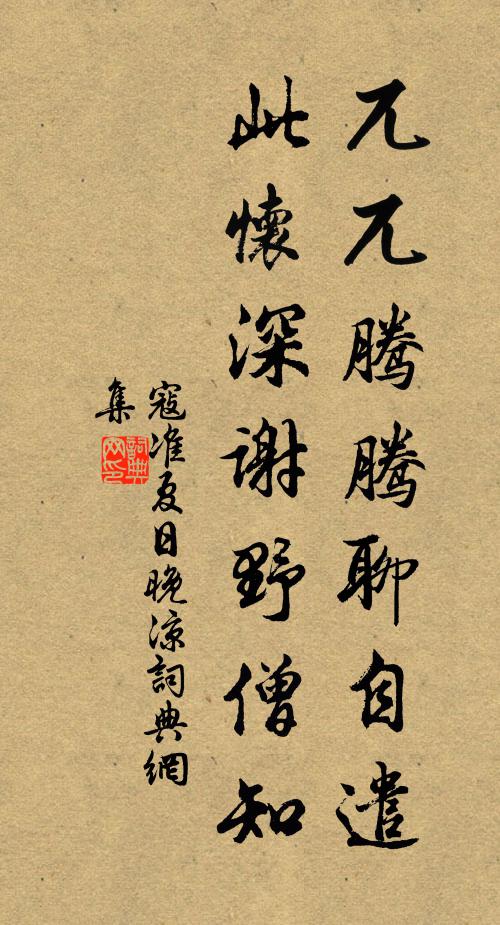 兀兀騰騰聊自遣
此懷深謝野僧知
寇准夏日晚涼詞典網
集
詞典
网印